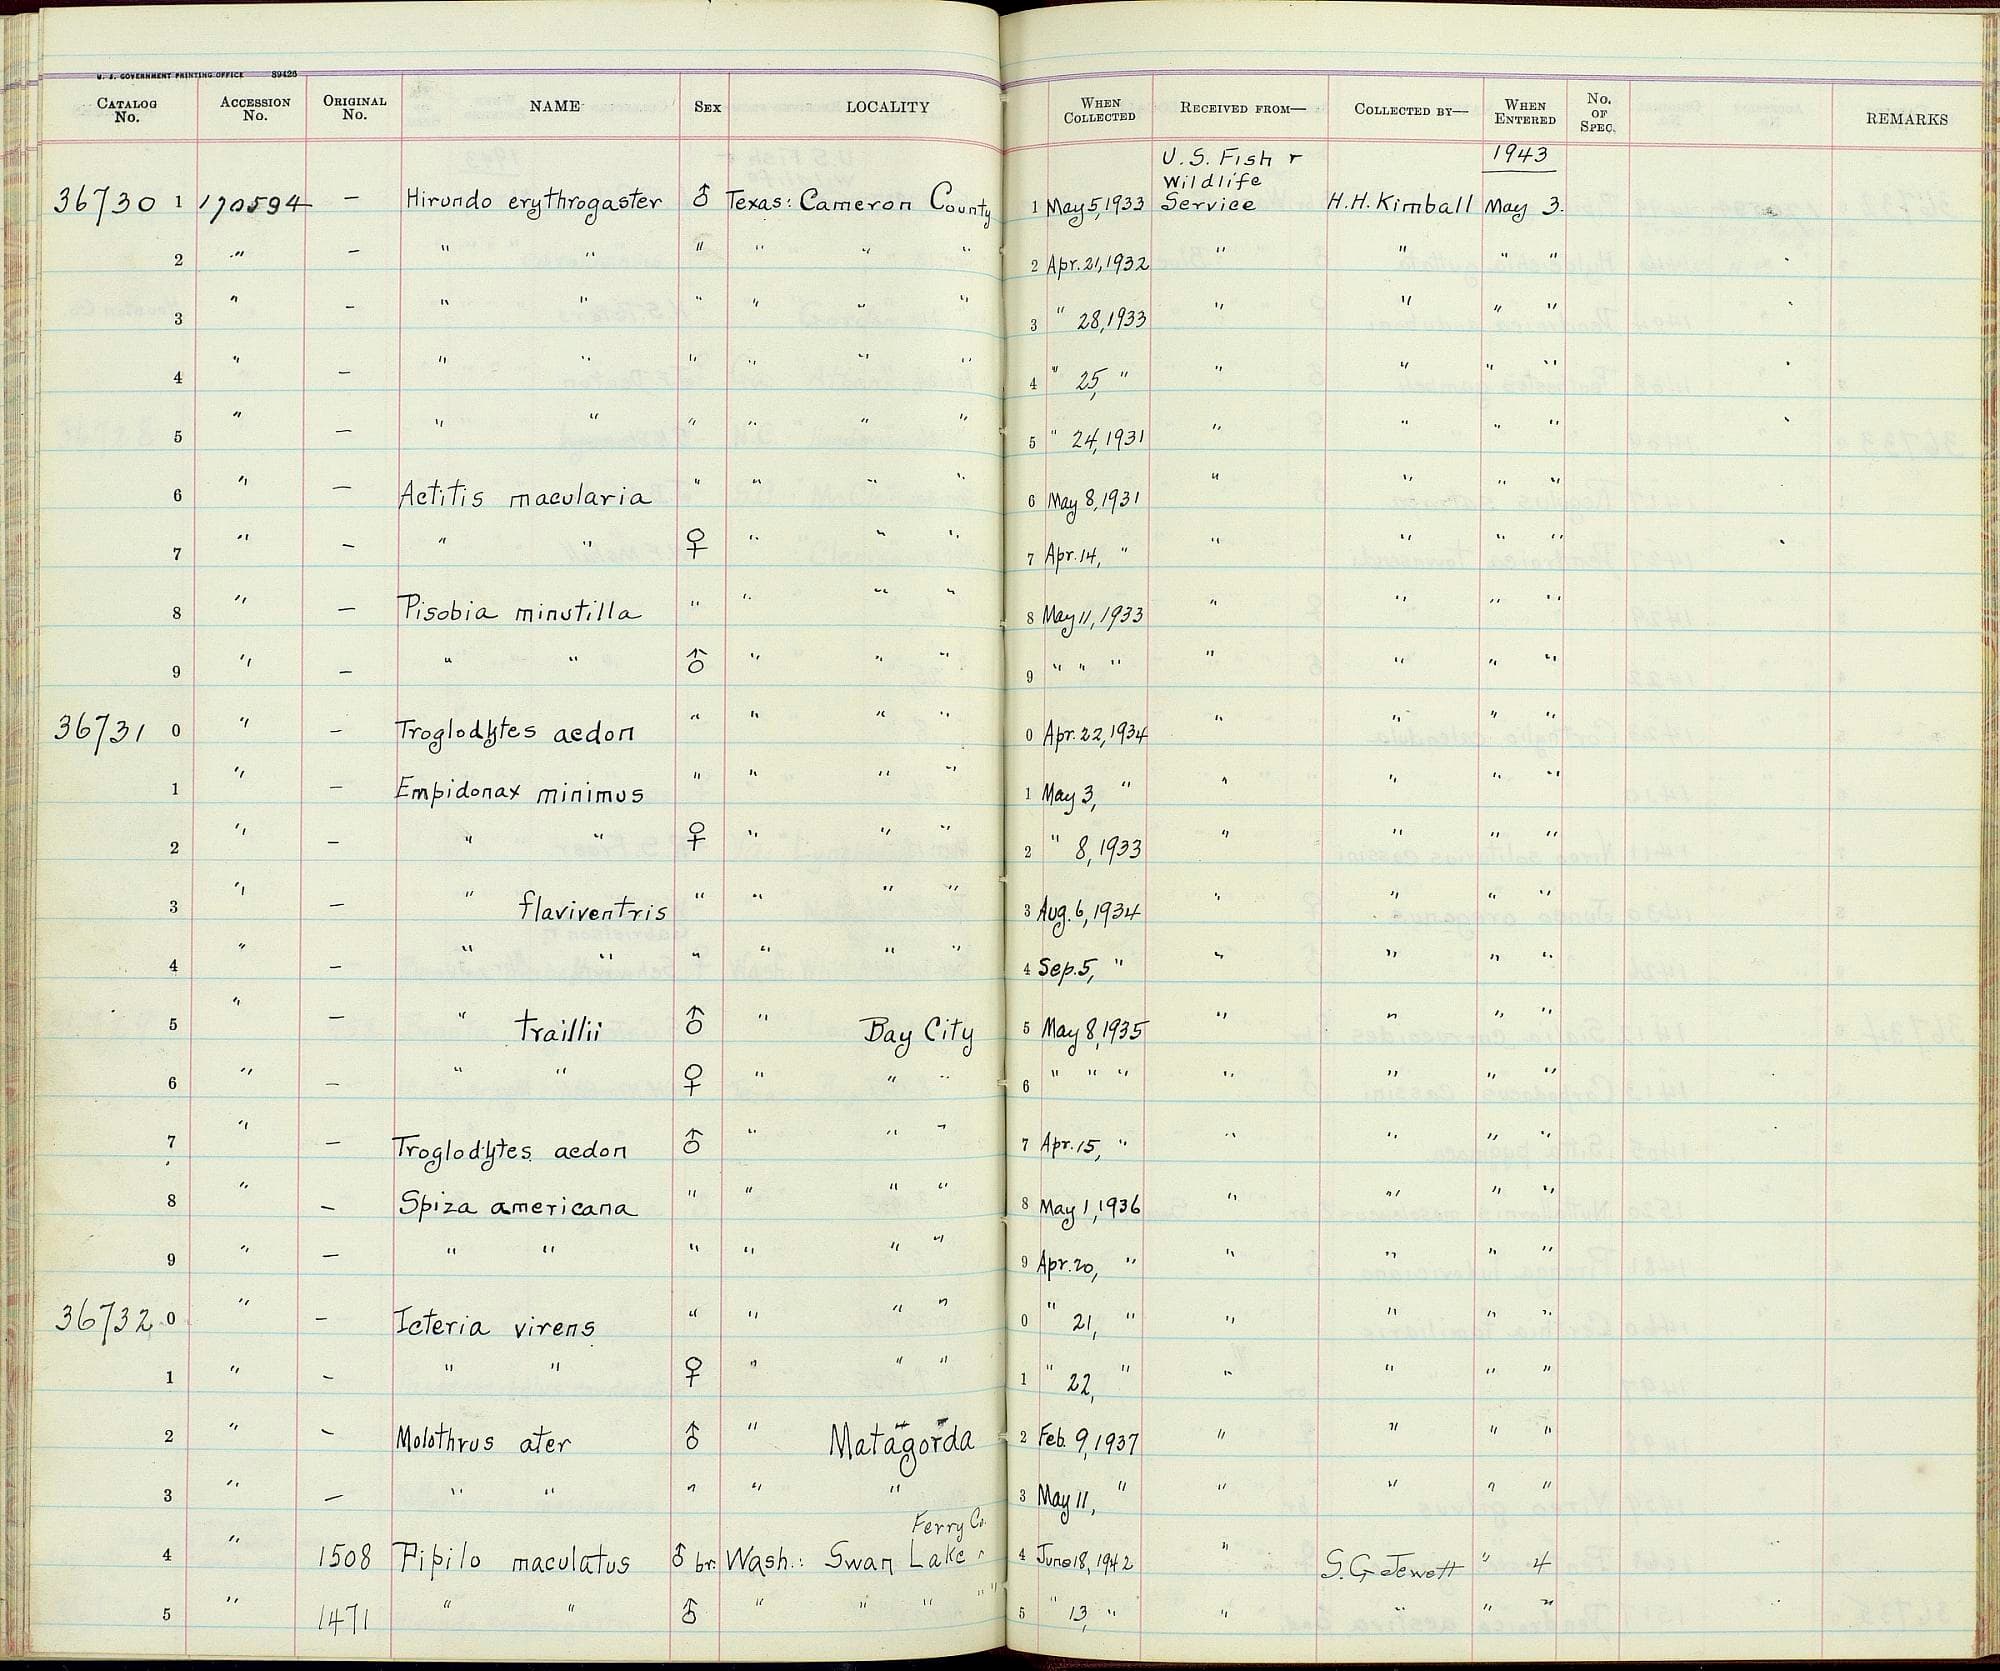 U. S. GOVERNMENT PRINTING OFFICE 89426
CATALOG No. ACCESSION No. ORIGINAL No. NAME SEX LOCALITY WHEN COLLECTED RECEIVED FROM— COLLECTED BY— WHEN ENTERED No. OF SPEC. REMARKS
U.S. Fish & Wildlife 1943
36730 1 170594 — Hirundo erythrogaster ♂ Texas: Cameron County 1 May 5, 1933 Service H.H. Kimball May 3.
2 " — " " " " " " 2 Apr. 21, 1932 " " " "
3 " — " " " " " " 3 " 28, 1933 " " " "
4 " — " " " " " " 4 " 25, " " " " "
5 " — " " " " " " 5 " 24, 1931 " " " "
6 " — Actitis macularia " " " " 6 May 8, 1931 " " " "
7 " — " " ♀ " " " 7 Apr. 14, " " " " "
8 " — Pisobia minutilla " " " " 8 May 11, 1933 " " " "
9 " — " " ♂ " " " 9 " " " " " " "
36731 0 " — Troglodytes aedon " " " " 0 Apr. 22, 1934 " " " "
1 " — Empidonax minimus " " " " 1 May 3, " " " " "
2 " — " " ♀ " " " 2 " 8, 1933 " " " "
3 " — " flaviventris " " " " 3 Aug. 6, 1934 " " " "
4 " — " " " " " " 4 Sep. 5, " " " " "
5 " — " traillii ♂ " Bay City 5 May 8, 1935 " " " "
6 " — " " ♀ " " " 6 " " " " " " "
7 " — Troglodytes aedon ♂ " " " 7 Apr. 15, " " " " "
8 " — Spiza americana " " " " 8 May 1, 1936 " " " "
9 " — " " " " " " 9 Apr. 20, " " " " "
36732 0 " — Icteria virens " " " " 0 " 21, " " " " "
1 " — " " ♀ " " " 1 " 22, " " " " "
2 " — Molothrus ater ♂ " Matagorda 2 Feb. 9, 1937 " " " "
3 " — " " " " " 3 May 11, " " " " "
Ferry Co.
4 " 1508 Pipilo maculatus ♂ br. Wash.: Swan Lake 4 June 18, 1942 " S. G. Jewett " 4
5 " 1471 " " ♂ " " " " " 5 " 13, " " " " "